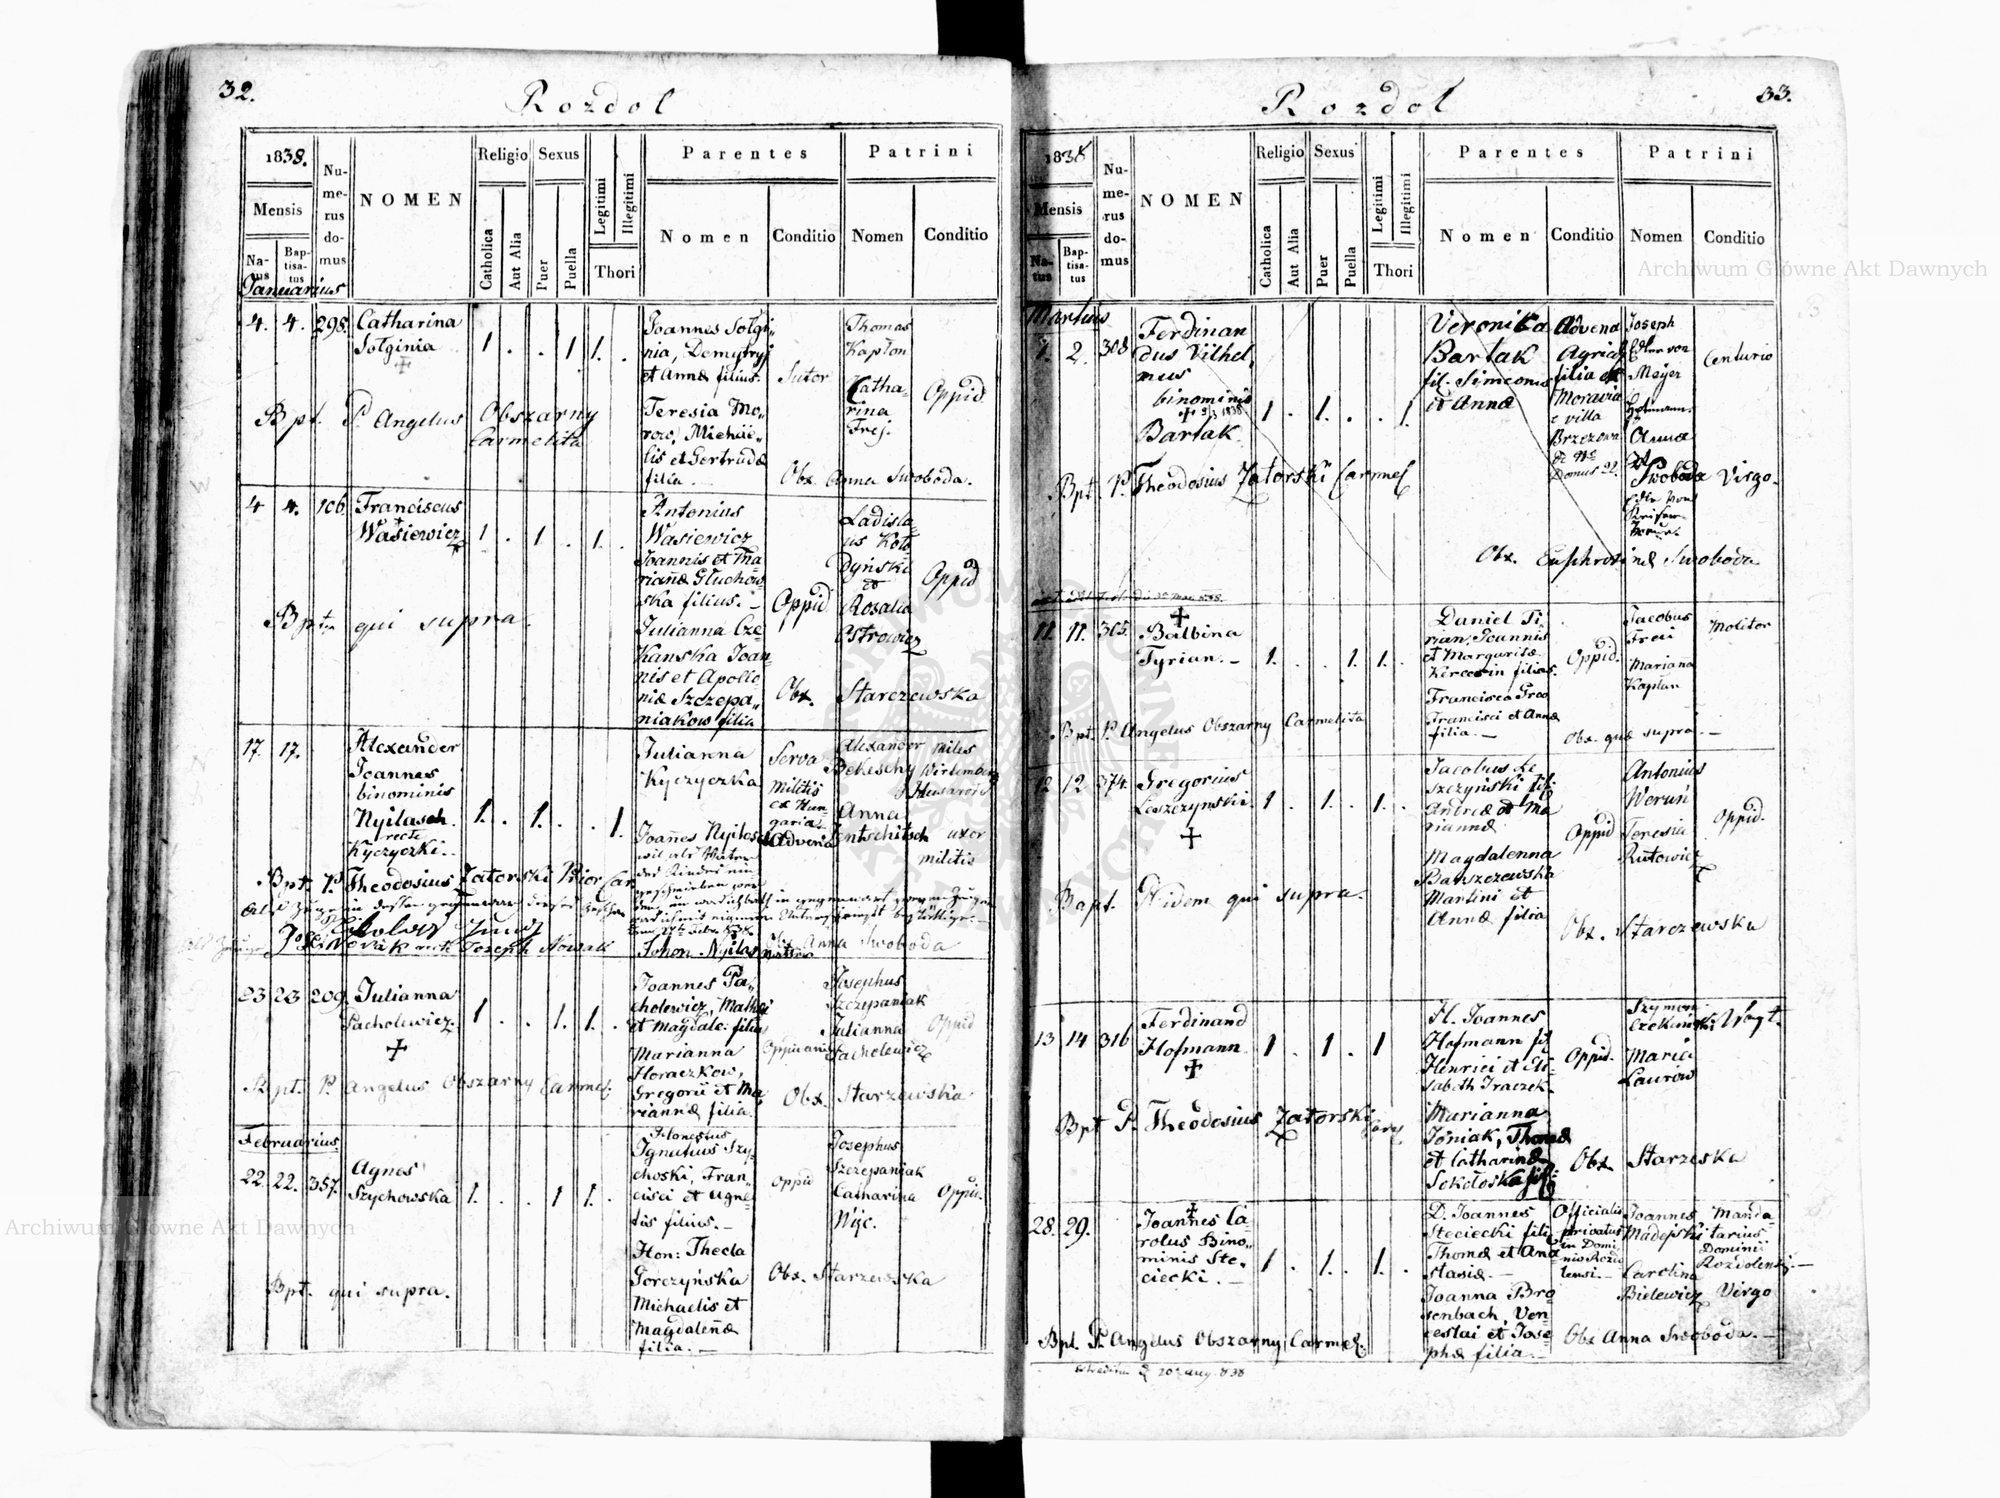 32.
Rozdol
1838.
Mensis
Na-
tus
Bap-
tisa-
tus
Nu-
me-
rus
do-
mus
NOMEN
Religio
Catholica
Aut Alia
Sexus
Puer
Puella
Legitimi
Illegitimi
Thori
Parentes
Nomen
Conditio
Patrini
Nomen
Conditio
Januarius
4. 4. 298.
Catharina
Solginia
1 . . 1 1. .
Joannes Solgi-
nia, Demytryj
et Annæ filius.
Teresia Mo-
row, Michae-
lis et Gertrudæ
filia.
Sutor
Thomas
Kaplon
Catha-
rina
Frej.
Oppid
Bpt. P. Angelus Obszarny
Carmelita
Obx. Anna Swoboda.
4 4. 106
Franciscus
Wasiewicz
1 . 1 . 1. .
Antonius
Wasiewicz
Joannis et Ma-
riannæ Gluchow-
ska filius. -
Julianna Cze-
kanska Joan-
nis et Apollo
niæ Szczepa-
niakow filia
Oppid.
Ladisla-
us Kolo-
dyński
et
Rosalia
Ostrowicz
Oppid
Bpt. qui supra.
Obx. Starczewska
17. 17.
Alexander
Joannes
binominis
Nyilasch
recte
Kyczyczki.
1. . 1. . . 1.
Julianna
Kyczyczka
Serva
militis
ex Hun-
garia
Advena
Alexander
Bekeschy
Anna
Jentschitsch
miles
Wirtemberg
Husarorum
uxor
militis
Joannes Nyilasch
Bpt. P. Theodosius Zatorski Prior Car
Josef Novak recte Joseph Nowak
John Nyilas
Obx. Anna Swoboda
23 23 209.
Julianna
Pacholewicz.
1 . . 1. 1. .
Joannes Pa-
cholewicz, Mathei
et Magdale: filius
Marianna
Horaczkow,
Gregorii et Ma-
riannæ filia.
Oppidanus
Josephus
Szczepaniak
Julianna
Pacholewicz
Oppid
Bpt. P. Angelus Obszarny Carmel.
Obx. Starzewska
Februarius.
22. 22. 357.
Agnes
Szychowska
1. . . 1 1. .
Honestus
Ignatius Szy-
choski, Fran-
cisci et Agne-
tis filius. -
Hon: Thecla
Gorczyńska
Michaelis et
Magdalenæ
filia. -
Oppid
Josephus
Szczepaniak
Catharina
Wijc.
Oppid.
Bpt. qui supra.
Obx. Starzewska
33.
Rozdol
1838
Mensis
Na-
tus
Bap-
tisa-
tus
Nu-
me-
rus
do-
mus
NOMEN
Religio
Catholica
Aut Alia
Sexus
Puer
Puella
Legitimi
Illegitimi
Thori
Parentes
Nomen
Conditio
Patrini
Nomen
Conditio
Martius
1. 2. 308
Ferdinan
dus Vilhel,
meus
binominis
9/3 1838
Bartak
1 . 1. . . 1.
Veronika
Bartak
fil. Simeonis
et Annæ
Advena
Agricolæ
filia ex
Moravia
e villa
Brzezowa
Domus 22.
Joseph
Edler von
Meyer
Anna
Swoboda
Centurio
Virgo.
Bpt. P. Theodosius Zatorski Carmel
Obx. Euphrosina Swoboda
11. 11. 365.
Balbina
Tyrian. -
1. . . 1. 1. .
Daniel Ti-
rian, Joannis
et Margaritæ
Kercerin filius.
Francisca Groo
Francisci et Annæ
filia. -
Oppid.
Jacobus
Frei
Mariana
Kaplun
Molitor
Bpt. P. Angelus Obszarny Carmelita
Obx. quæ supra. -
12 12 374.
Gregorius
Leszczynski.
1 . 1. . 1. .
Jacobus Le-
szczyński fili
Andreæ et Ma-
riannæ
Magdalenna
Barszczewska
Martini et
Annæ filia
Oppid
Antonius
Werun
Teresia
Rutowicz
Oppid.
Bapt. Pridem qui supra.
Obx. Starczewska
13 14 316
Ferdinand
Hofmann
1 . 1 . 1
H. Joannes
Hofmann fil
Henrici et Eli-
sabeth Traczek.
Marianna
Joniak, Thomæ
et Catharinæ
Sokołoska fil:
Oppid.
Szymon
Czekinski
Maria
Laurow
Wagt.
Bpt P. Theodosius Zatorski Carm
Obx Starzeska
28. 29.
Joannes Ca-
rolus Bino-
minis Ste-
ciecki. -
1 . 1. . 1. .
D. Joannes
Steciecki fili
Thomæ et Ana-
stasiæ. -
Joanna Bro-
senbach, Ven-
ceslai et Jose-
phæ filia. -
Officialis
privatus
in Domi-
nio Rozdo-
lensi. -
Joannes
Madejski
Carolina
Bielewicz
Manda-
tarius
Dominii
Rozdolensis. -
Virgo
Bpt. P. Angelus Obszarny, Carmel.
Obx Anna Swoboda. -
20 aug. 838
Archiwum Główne Akt Dawnych
Archiwum Główne Akt Dawnych